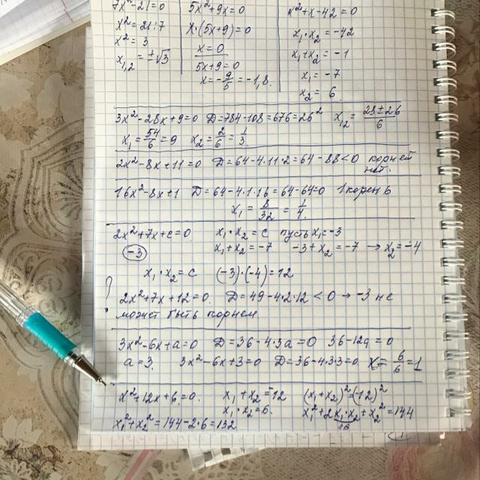 7x²-21=0
x²=21:7
x²=3
x₁,₂=±√3
5x²+9x=0
x·(5x+9)=0
x=0
5x+9=0
x=-9/5=-1,8.
x²+x-42=0
x₁·x₂=-42
x₁+x₂=-1
x₁=-7
x₂=6
3x²-28x+9=0 D=784-108=676=26² x₁,₂=(28±26)/6
x₁=54/6=9 x₂=2/6=1/3
2x²-8x+11=0 D=64-4·11·2=64-88<0 корней нет.
16x²-8x+1 D=64-4·1·16=64-64=0 1 корень
x₁=8/32=1/4
2x²+7x+c=0 x₁·x₂=c пусть x₁=-3
-3 x₁+x₂=-7 -3+x₂=-7 → x₂=-4
x₁·x₂=c (-3)·(-4)=12
? 2x²+7x+12=0. D=49-4·2·12<0 → -3 не
может быть корнем
3x²-6x+a=0 D=36-4·3a=0 36-12a=0
a=3. 3x²-6x+3=0 D=36-4·3·3=0. x=6/6=1
x²+12x+6=0. x₁+x₂=-12 (x₁+x₂)²=(12)²
x₁·x₂=6. x₁²+2x₁·x₂+x₂²=144
x₁²+x₂²=144-2·6=132